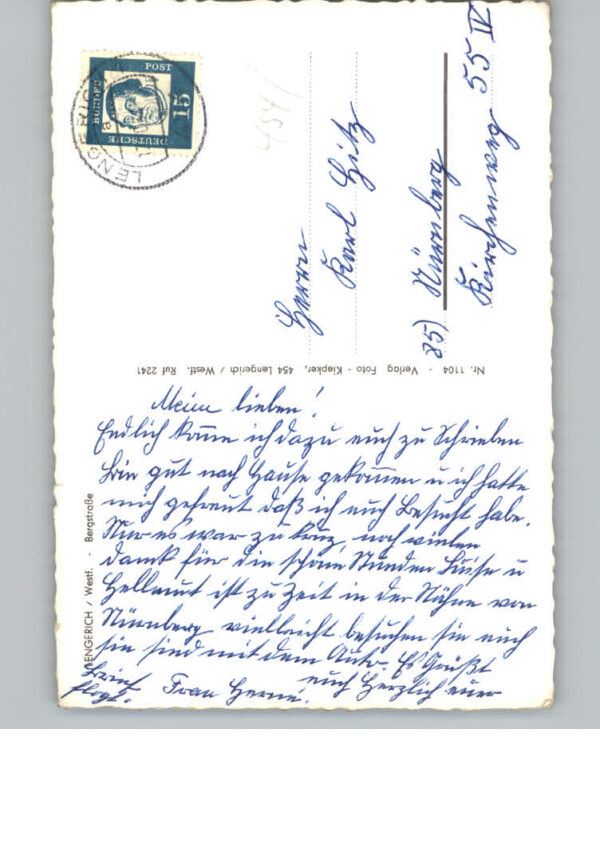 Meine lieben!
Endlich komme ich dazu euch zu Schreiben
bin gut nach Hause gekommen u ich hatte
mich gefreut daß ich euch Besucht habe.
Nur es war zu kurz, noch vielen
dank für die schöne Stunden Luise u
Hellmut ist zu Zeit in der Nähe von
Nürnberg vielleicht besuchen sie euch
sie sind mit dem Auto. Es Grüßt
euch Herzlich eure
Frau
Brief
folgt.
Herrn
Karl
85) Nürnberg
Kirchenweg 55 IV
454/
DEUTSCHE
BUNDES
POST
15
LENGERICH
Nr. 1104 - Verlag Foto - Kiepker, 454 Lengerich / Westf. Ruf 2241
LENGERICH / Westf. - Bergstraße